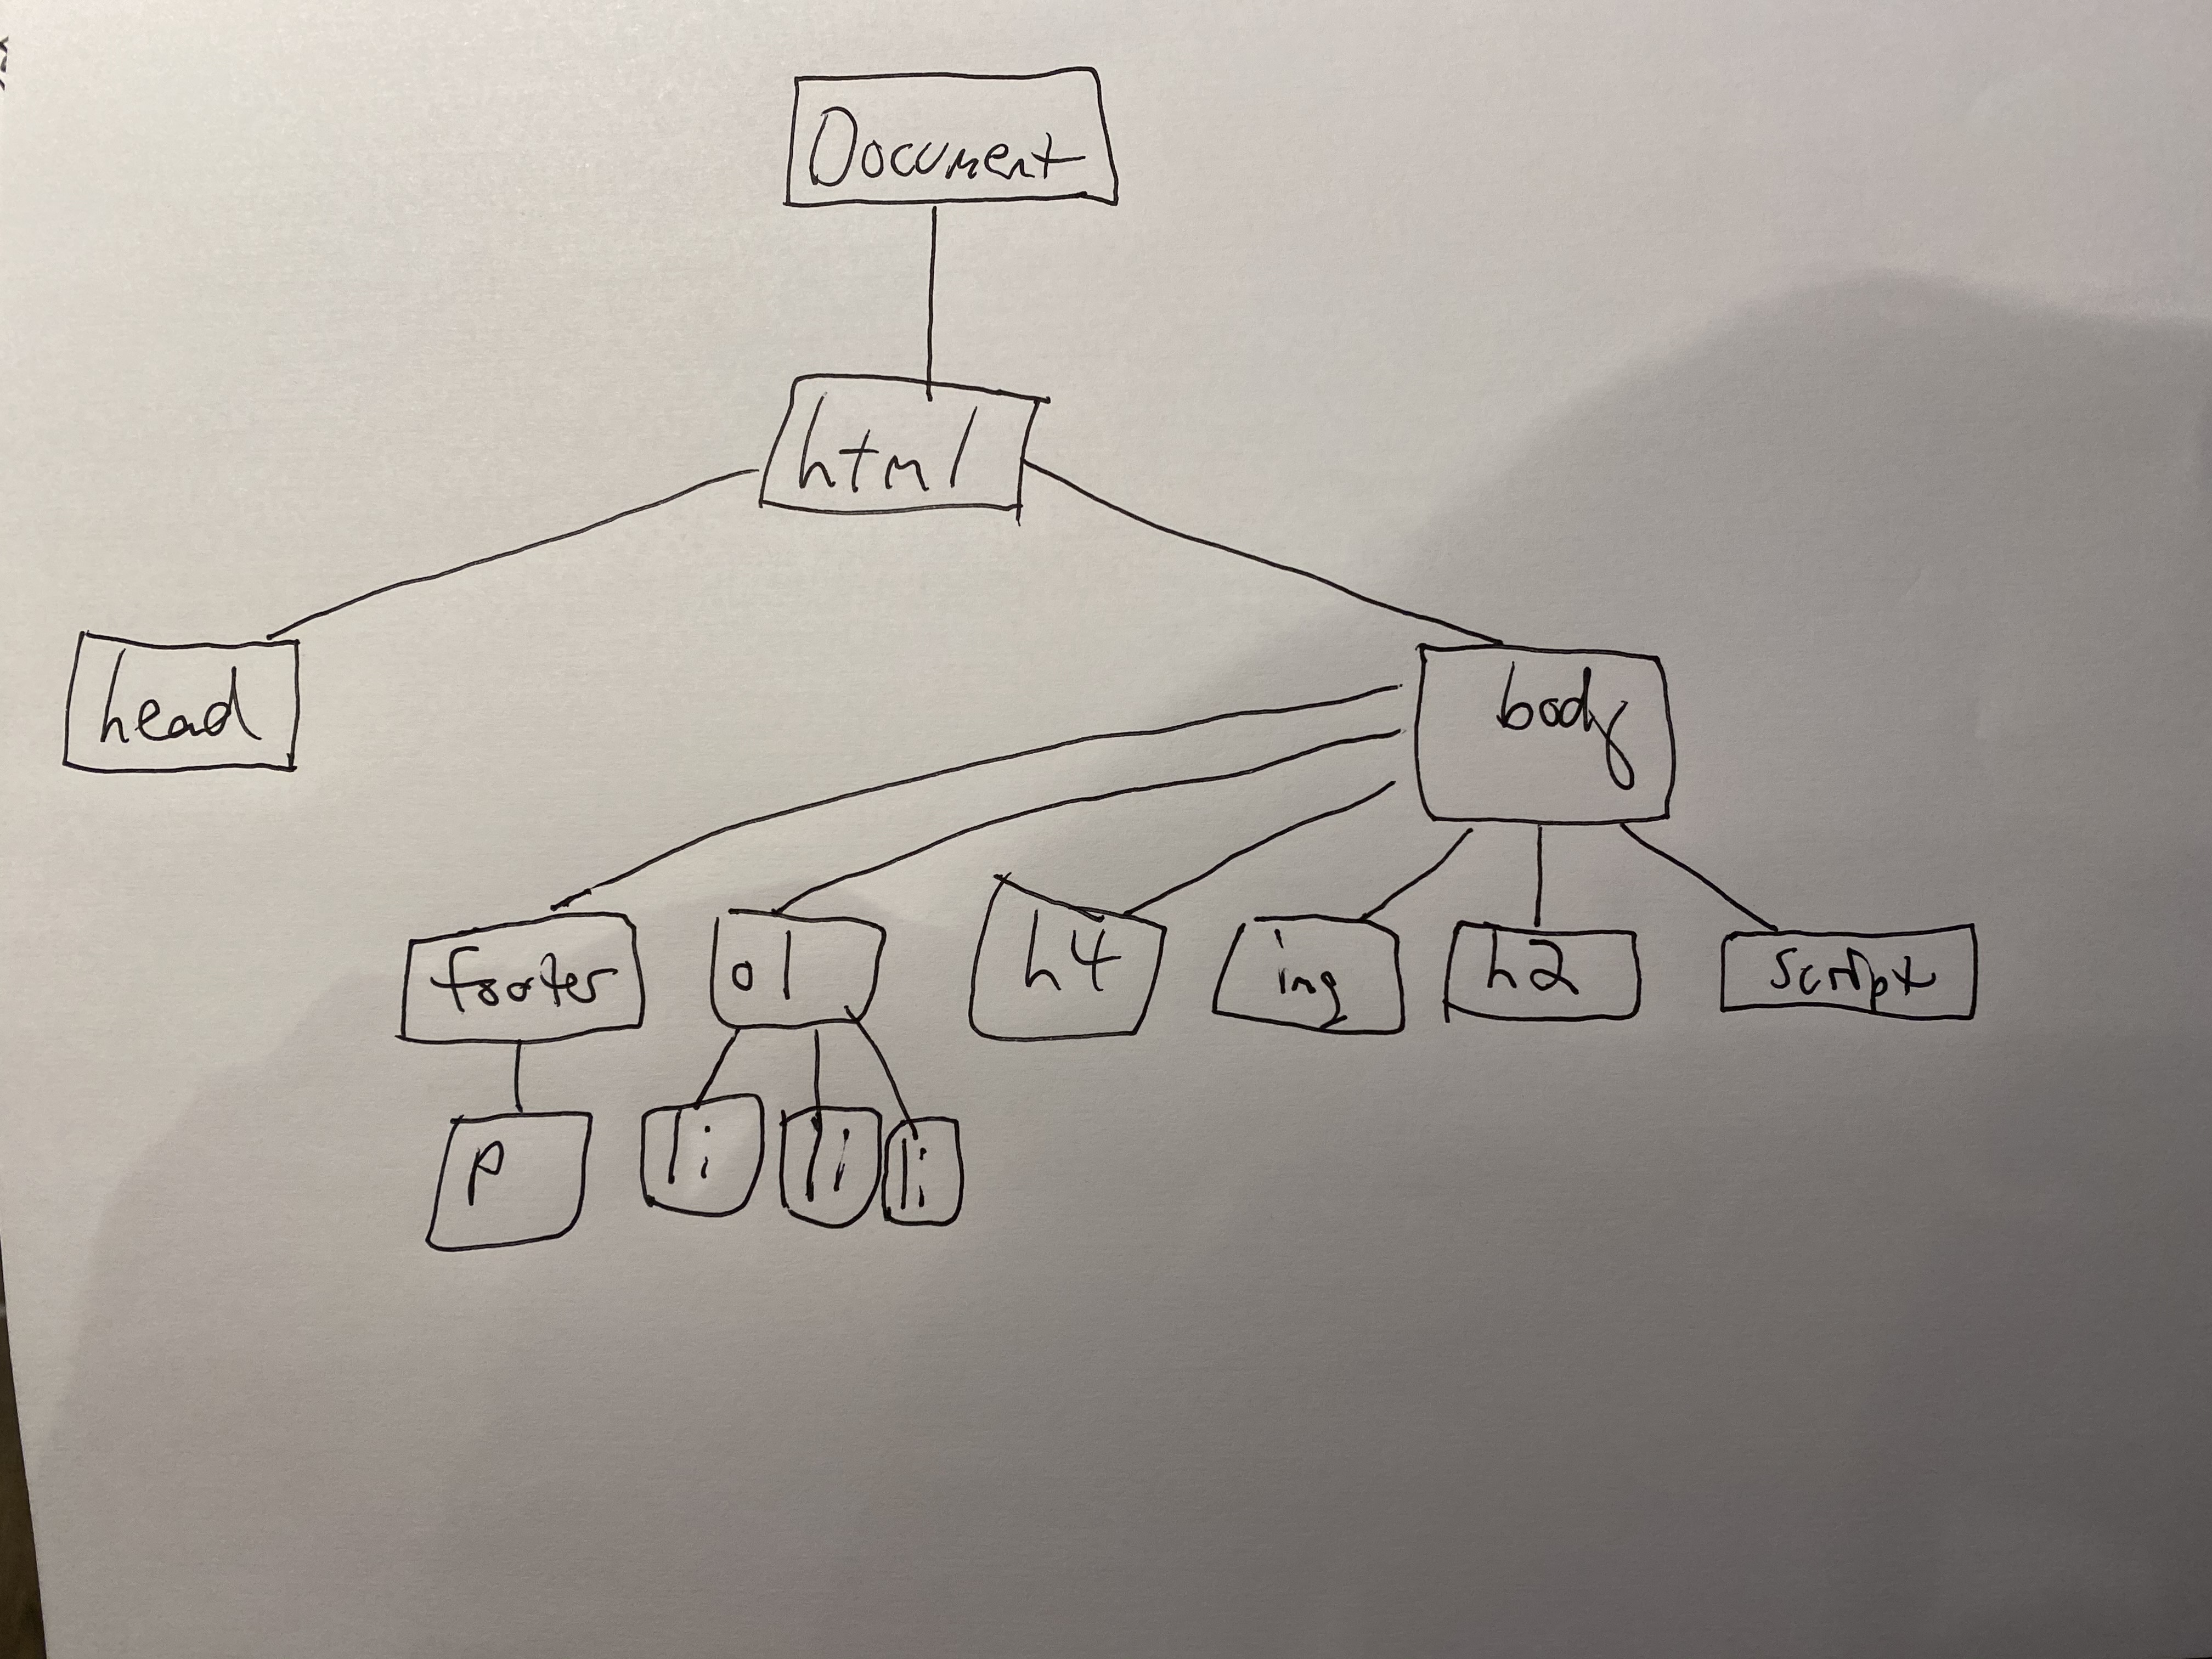 Document
html
head
body
footer
ol
h4
img
h2
script
p
li
li
li